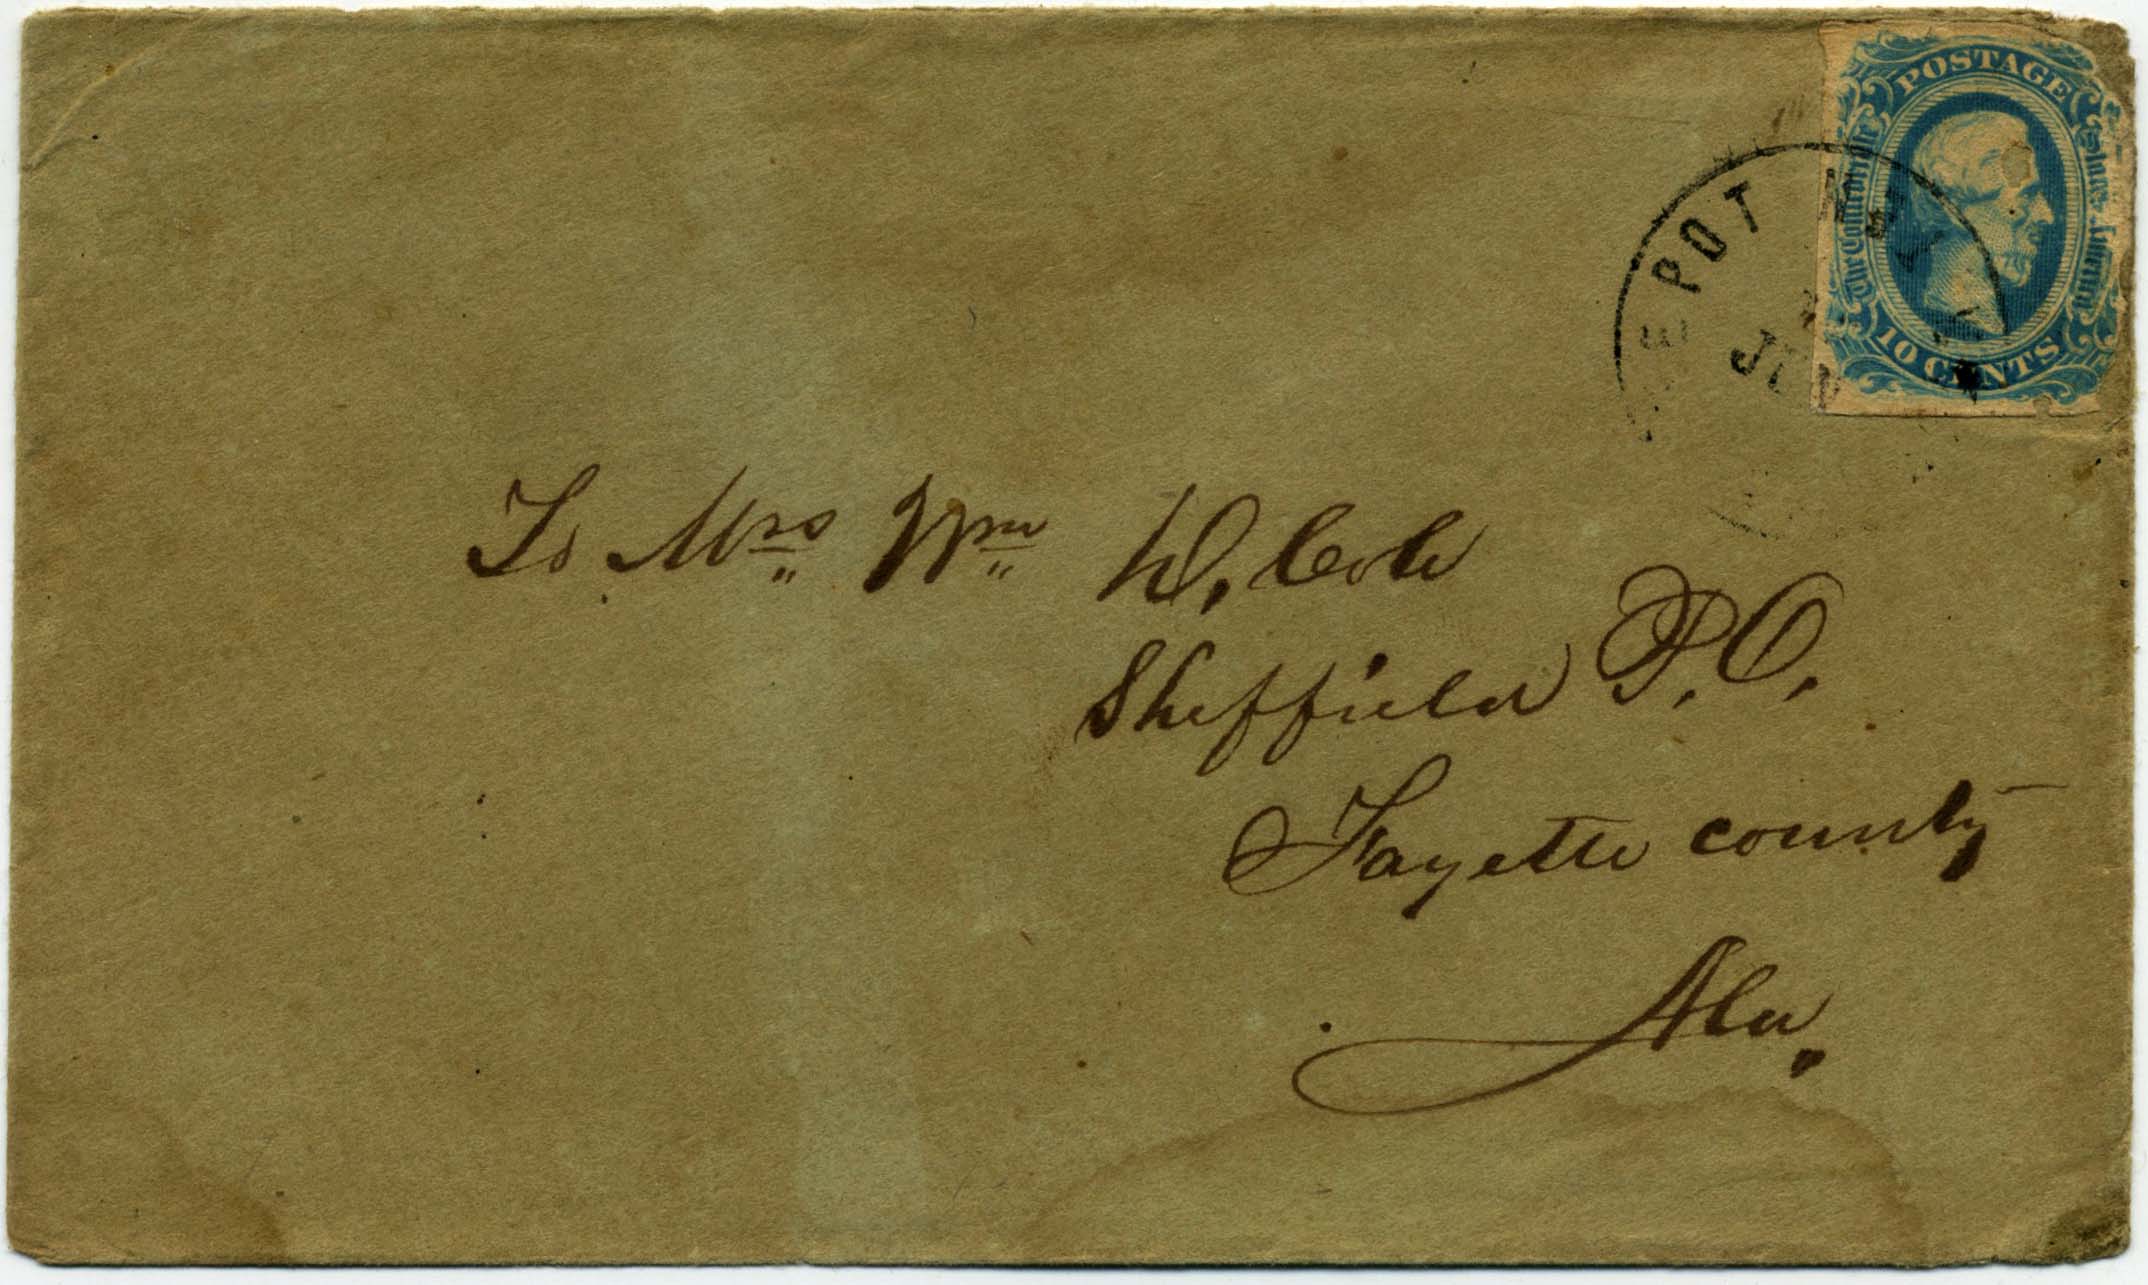 POSTAGE
The Confederate States of America
10 CENTS
EPOT
JUN
To Mrs Wm W. Cole
Sheffield P.O.
Fayette county
Ala.